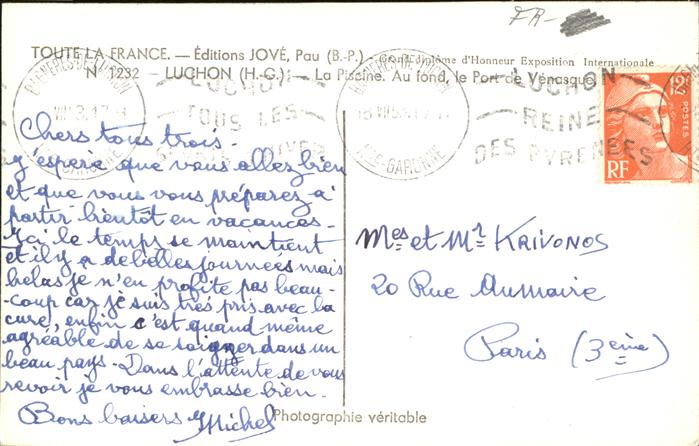 FR-
TOUTE LA FRANCE. — Éditions JOVÉ, Pau (B.-P.) - Grand diplôme d'Honneur Exposition Internationale
N° 1232 — LUCHON (H.-G.). — La Piscine. Au fond, le Port de Vénasque
BAGNERES-DE-LUCHON
HTE-GARONNE
LUCHON
TOUS LES
18 VIII 53
HTE-GARONNE
LUCHON
REINE
DES PYRENEES
12F
POSTES
RF
Chers tous trois.
J'espère que vous allez bien
et que vous vous préparez a'
partir bientôt en vacances.
Ici le temps se maintient
et il y a de belles journées mais
hélas je n'en profite pas beau-
-coup car je suis très pris avec la
cure, enfin c'est quand même
agréable de se soigner dans un
beau pays. Dans l'attente de vous
revoir je vous embrasse bien.
Bons baisers Michel
Mes et Mr KRIVONOS
20 Rue Aumaire
Paris (3ème)
Photographie véritable